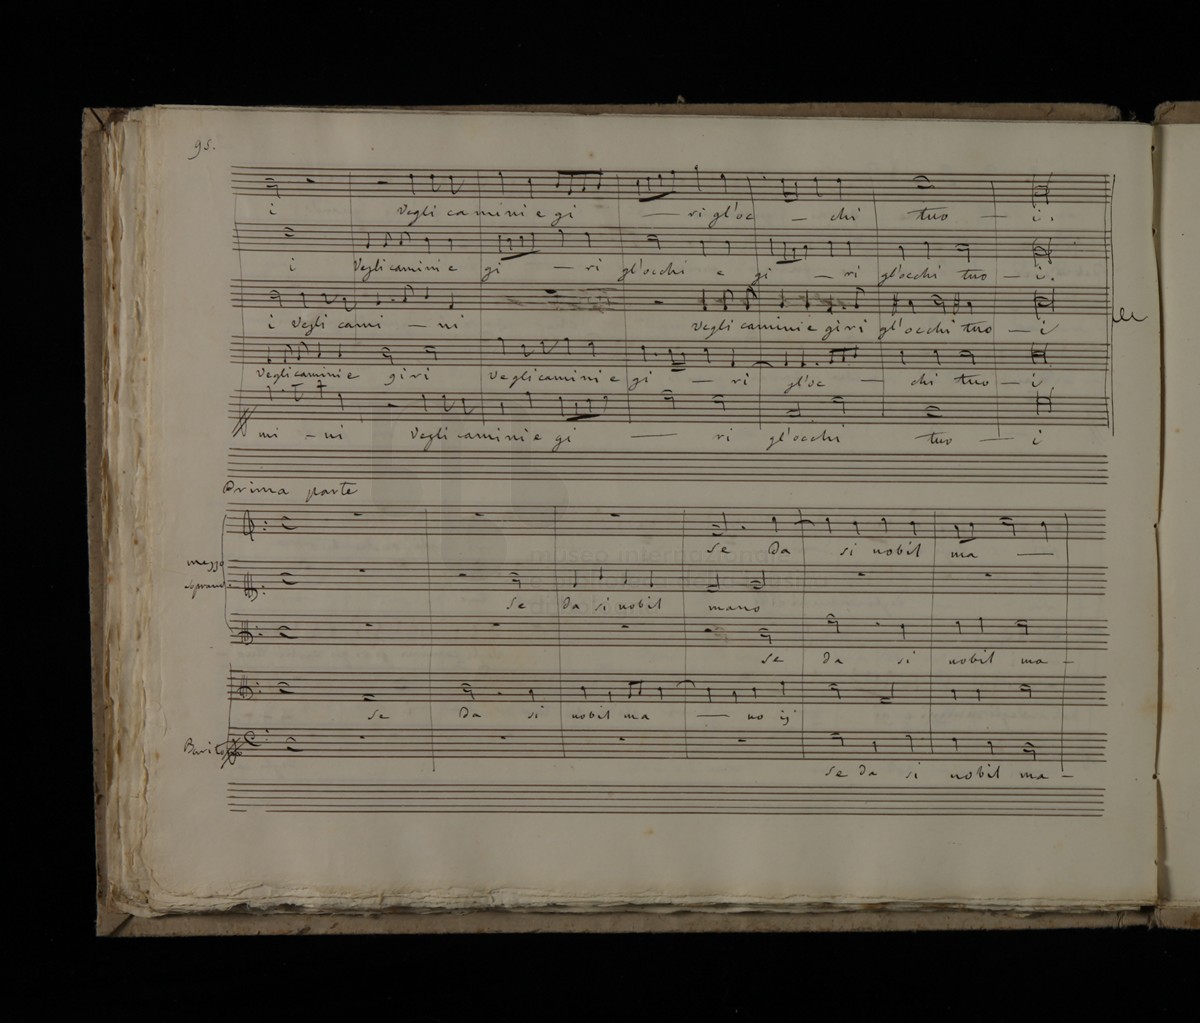 95.
i Vegli camini e gi — ri gl'oc — chi tuo — i.
i Vegli camini e gi — ri gl'occhi e gi — ri gl'occhi tuo — i.
i Vegli cami — ni Vegli camini e giri gl'occhi tuo — i
Vegli camini e giri Vegli camini e gi — ri gl'oc — chi tuo — i,
mi — ni Vegli camini e gi — ri gl'occhi tuo — i
Prima parte
se da si nobil ma —
mezzo
soprano
se da si nobil mano
se da si nobil ma —
se da si nobil ma — no ij
se da si nobil ma —
museo internazionale